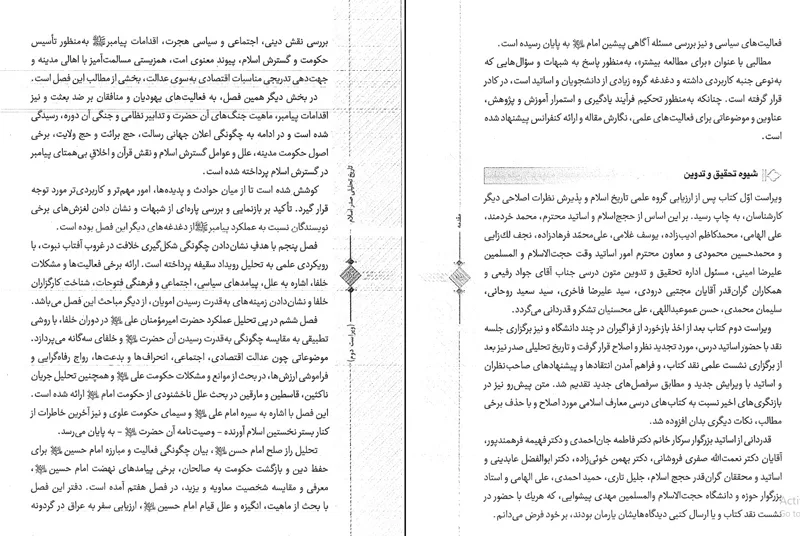 فعالیت‌های سیاسی و نیز بررسی مسئله آگاهی پیشین امام ﷺ به پایان رسیده است.
مطالبی با عنوان «برای مطالعه بیشتر»، به‌منظور پاسخ به شبهات و سؤال‌هایی که
به‌نوعی جنبه کاربردی داشته و دغدغه گروه زیادی از دانشجویان و اساتید است، در کادر
قرار گرفته است. چنانکه به‌منظور تحکیم فرآیند یادگیری و استمرار آموزش و پژوهش،
عناوین و موضوعاتی برای فعالیت‌های علمی، نگارش مقاله و ارائه کنفرانس پیشنهاد شده
است.
شیوه تحقیق و تدوین
ویراست اوّل کتاب پس از ارزیابی گروه علمی تاریخ اسلام و پذیرش نظرات اصلاحی دیگر
کارشناسان، به چاپ رسید. بر این اساس از حجج‌اسلام و اساتید محترم، محمد خردمند،
علی الهامی، محمدکاظم ادیب‌زاده، یوسف غلامی، علی‌محمّد فرهادزاده، نجف لک‌زایی
و محمدحسین محمودی و معاون محترم امور اساتید وقت حجت‌الاسلام و المسلمین
علیرضا امینی، مسئول اداره تحقیق و تدوین متون درسی جناب آقای جواد رفیعی و
همکاران گران‌قدر آقایان مجتبی درودی، سید علیرضا فاخری، سید سعید روحانی،
سلیمان محمدی، حسن عموعبداللهی، علی محسنیان تشکر و قدردانی می‌گردد.
ویراست دوم کتاب بعد از اخذ بازخورد از فراگیران در چند دانشگاه و نیز برگزاری جلسه
نقد با حضور اساتید درس، مورد تجدید نظر و اصلاح قرار گرفت و تاریخ تحلیلی صدر نیز بعد
از برگزاری نشست علمی نقد کتاب، و فراهم آمدن انتقادها و پیشنهادهای صاحب‌نظران
و اساتید با ویرایش جدید و مطابق سرفصل‌های جدید تقدیم شد. متن پیش‌رو نیز در
بازنگری‌های اخیر نسبت به کتاب‌های درسی معارف اسلامی مورد اصلاح و با حذف برخی
مطالب، نکات دیگری بدان افزوده شد.
قدردانی از اساتید بزرگوار سرکار خانم دکتر فاطمه جان‌احمدی و دکتر فهیمه فرهمندپور،
آقایان دکتر نعمت‌الله صفری فروشانی، دکتر بهمن خوئی‌زاده، دکتر ابوالفضل عابدینی و
اساتید و محققان گران‌قدر حجج اسلام، جلیل تاری، حمید احمدی، علی الهامی و استاد
بزرگوار حوزه و دانشگاه حجت‌الاسلام والمسلمین مهدی پیشوایی، که هریك با حضور در
نشست نقد کتاب و یا ارسال کتبی دیدگاه‌هایشان یارمان بودند، بر خود فرض می‌دانم.
مقدمه
بررسی نقش دینی، اجتماعی و سیاسی هجرت، اقدامات پیامبرﷺ به‌منظور تأسیس
حکومت و گسترش اسلام، پیوند معنوی امت، همزیستی مسالمت‌آمیز با اهالی مدینه و
جهت‌دهی تدریجی مناسبات اقتصادی به‌سوی عدالت، بخشی از مطالب این فصل است.
در بخش دیگر همین فصل، به فعالیت‌های یهودیان و منافقان بر ضد بعثت و نیز
اقدامات پیامبر، ماهیت جنگ‌های آن حضرت و تدابیر نظامی و جنگی آن دوره، رسیدگی
شده است و در ادامه به چگونگی اعلان جهانی رسالت، حج برائت و حج ولایت، برخی
اصول حکومت مدینه، علل و عوامل گسترش اسلام و نقش قرآن و اخلاقِ بی‌همتای پیامبر
در گسترش اسلام پرداخته شده است.
کوشش شده است تا از میان حوادث و پدیده‌ها، امور مهم‌تر و کاربردی‌تر مورد توجه
قرار گیرد. تأکید بر بازنمایی و بررسی پاره‌ای از شبهات و نشان دادن لغزش‌های برخی
نویسندگان نسبت به عملکرد پیامبرﷺاز دغدغه‌های دیگر این فصل بوده است.
فصل پنجم با هدفِ نشان‌دادن چگونگی شکل‌گیری خلافت در غروب آفتاب نبوت، با
رویکردی علمی به تحلیل رویداد سقیفه پرداخته است. ارائه برخی فعالیت‌ها و مشکلات
خلفا، اشاره به علل، پیامدهای سیاسی، اجتماعی و فرهنگی فتوحات، شناخت کارگزاران
خلفا و نشان‌دادن زمینه‌های به‌قدرت رسیدن امویان، از دیگر مباحث این فصل می‌باشد.
فصل ششم در پی تحلیل عملکرد حضرت امیرمؤمنان علی ﷺ در دوران خلفا، با روشی
تطبیقی به مقایسه چگونگی به‌قدرت رسیدن آن حضرت ﷺ و خلفای سه‌گانه می‌پردازد.
موضوعاتی چون عدالت اقتصادی، اجتماعی، انحراف‌ها و بدعت‌ها، رواج رفاه‌گرایی و
فراموشی ارزش‌ها، در بحث از موانع و مشکلات حکومت علی ﷺ و همچنین تحلیل جریان
ناکثین، قاسطین و مارقین در بحث علل ناخشنودی از حکومت امام ﷺ ارائه شده است.
این فصل با اشاره به سیره امام علی ﷺ و سیمای حکومت علوی و نیز آخرین خاطرات از
کنار بستر نخستین اسلام آورنده – وصیت‌نامه آن حضرت ﷺ – به پایان می‌رسد.
تحلیل راز صلح امام حسن ﷺ، بیان چگونگی فعالیت و مبارزه امام حسین ﷺ برای
حفظ دین و بازگشت حکومت به صالحان، برخی پیامدهای نهضت امام حسین ﷺ،
معرفی و مقایسه شخصیت معاویه و یزید، در فصل هفتم آمده است. دفتر این فصل
با بحث از ماهیت، انگیزه و علل قیام امام حسین ﷺ، ارزیابی سفر به عراق در گردونه
تاریخ تحلیلی صدر اسلام
(ویراست دوم)